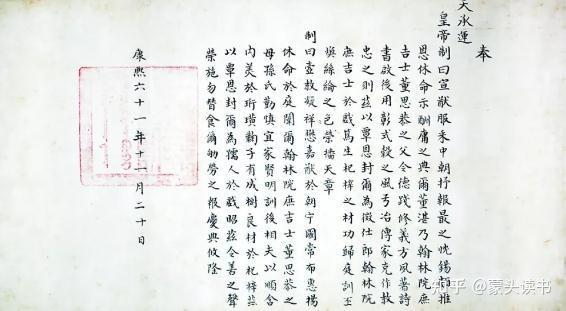 奉
天承運
皇帝制曰宣猷服采中朝抒報最之忱錫類推
恩休命示酬庸之典爾董湛乃翰林院庶
吉士董思恭之父令德踐修義方夙著詩
書啟後用彰式穀之風弓冶傳家克作教
忠之則茲以覃恩封爾為徵仕郎翰林院
庶吉士於戲篤生杞梓之材功歸庭訓
煥絲綸之色榮播天章
制曰壼教凝祥懋嘉猷於朝宁國常布惠揚
休命於庭闈爾翰林院庶吉士董思恭之
母孫氏勤慎宜家賢明訓後相夫以順含
內美於珩璜勗子有成樹良材於杞梓茲
以覃恩封爾為孺人於戲昭茲令善之聲
榮施勿替食爾劬勞之報慶典攸隆
康熙六十一年十一月二十日
知乎 @蒙头读书